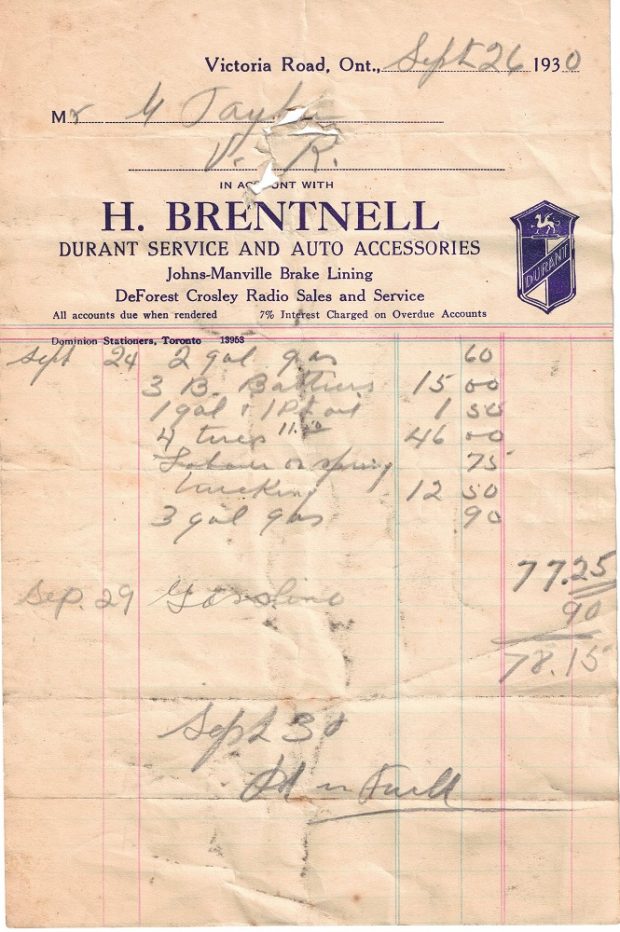 Victoria Road, Ont., Sept 26 1930
Mr G Taylor
V. R.
IN ACCOUNT WITH
H. BRENTNELL
DURANT SERVICE AND AUTO ACCESSORIES
DURANT
Johns-Manville Brake Lining
DeForest Crosley Radio Sales and Service
All accounts due when rendered 7% Interest Charged on Overdue Accounts
Dominion Stationers, Toronto 13953
Sept 24 2 gal gas 60
3 B. Batteries 15 00
1 gal & 1 Pt oil 1 50
4 tires 11.50 46 00
Labour on spring 75
trucking 12 50
3 gal gas 90
77.25
Sep. 29 Gasoline 90
78.15
Sept 30
Pd in Full